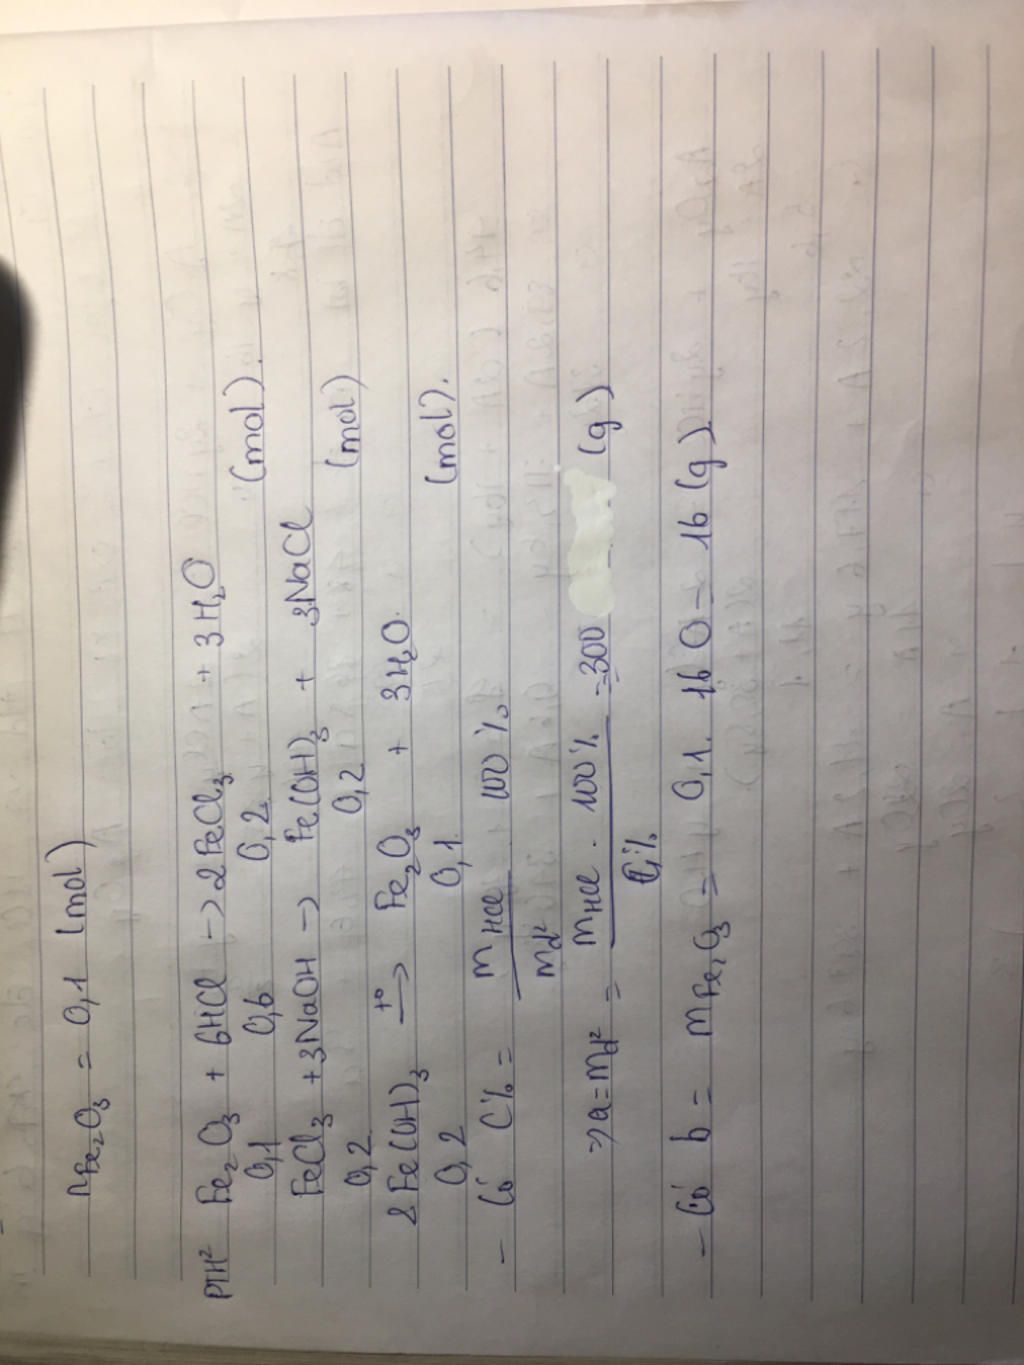 nFe₂O₃ = 0,1 (mol)
PTH² Fe₂O₃ + 6HCl -> 2FeCl₃ + 3H₂O
0,1 0,6 0,2 (mol).
FeCl₃ + 3NaOH -> Fe(OH)₃ + 3NaCl
0,2 0,2 (mol)
2Fe(OH)₃ t° -> Fe₂O₃ + 3H₂O
0,2 0,1 (mol).
- Có C% = mHCl / md² 100%
=> a = md² = mHCl . 100% / C% = 300 (g)
- Có b = mFe₂O₃ = 0,1. 160 = 16 (g)